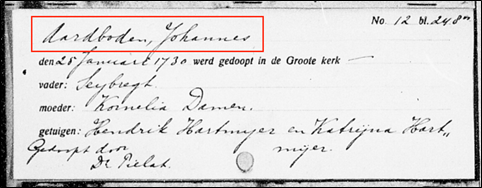 No. 12 bl. 248
Aardboden, Johannes
den 25 Januari 1730 werd gedoopt in de Groote kerk —
vader: Seybregt.
moeder: Kornelia Damen.
getuigen: Hendrik Hartmyer en Katryna Hart„
Gedoopt door myer.
Dr. Pielat.